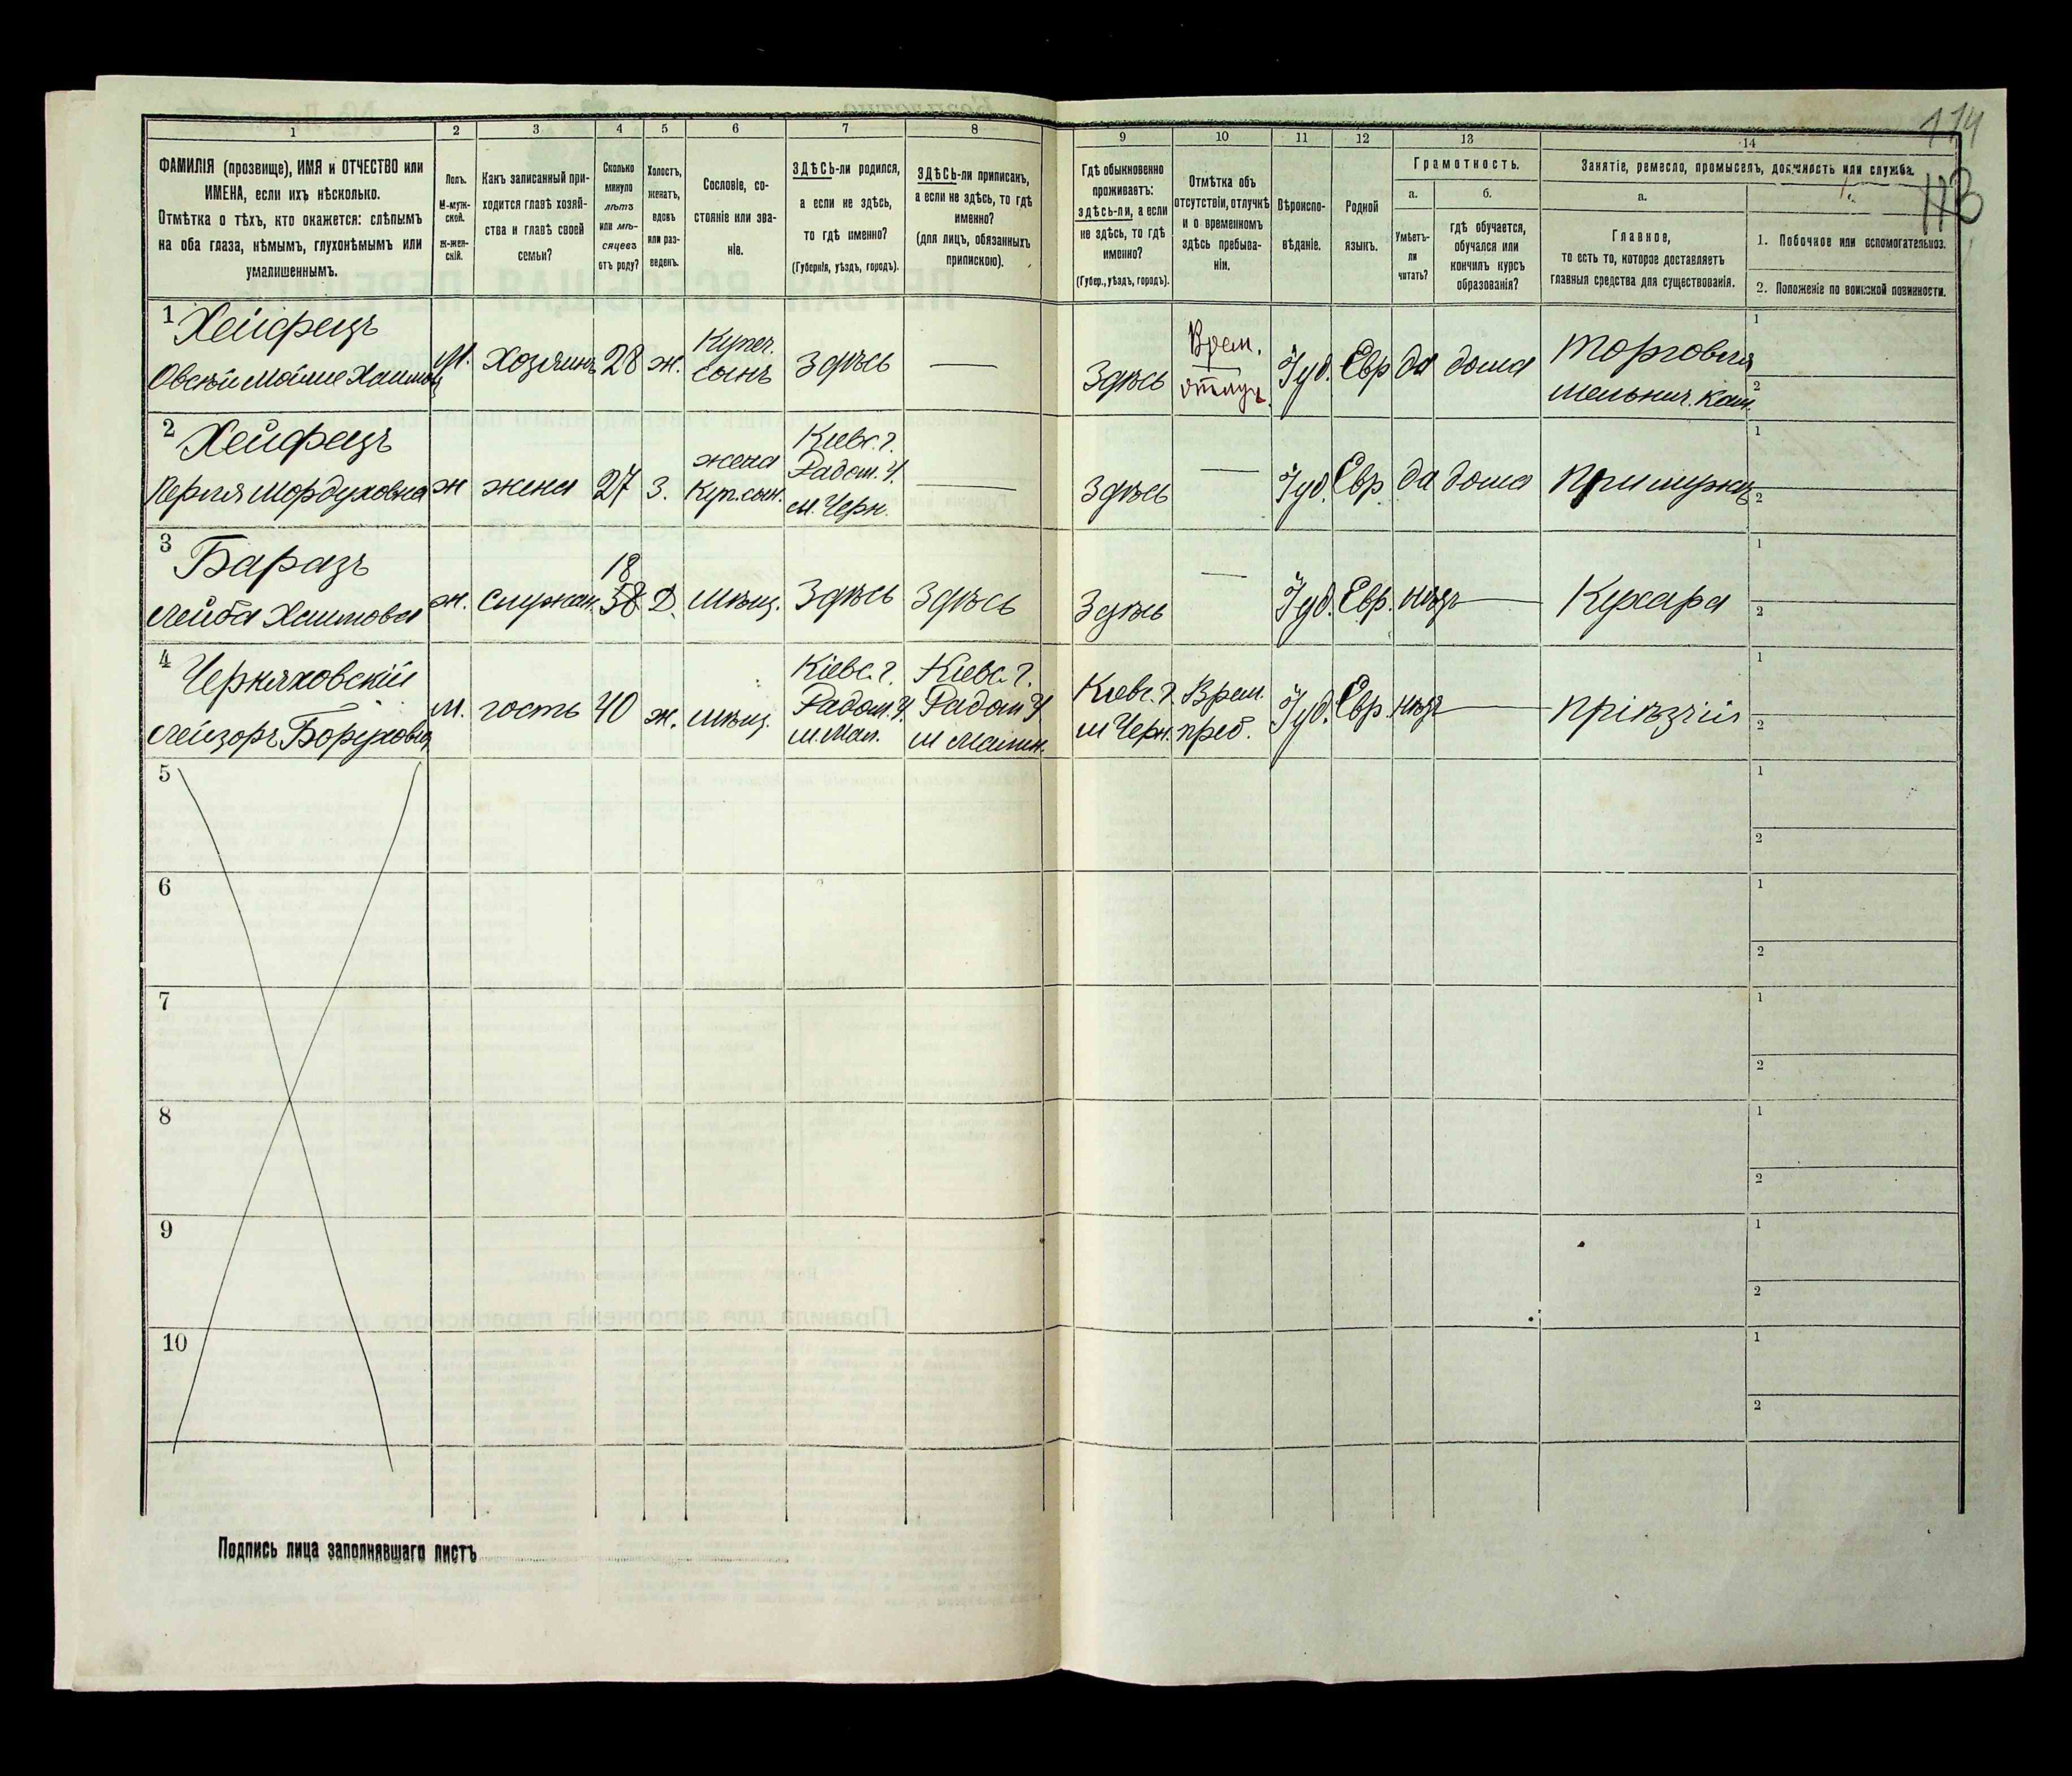 114
113
1
2
3
4
5
6
7
8
9
10
11
12
13
14
ФАМИЛІЯ (прозвище), ИМЯ и ОТЧЕСТВО или
ИМЕНА, если ихъ нѣсколько.
Отмѣтка о тѣхъ, кто окажется: слѣпымъ
на оба глаза, нѣмымъ, глухонѣмымъ или
умалишеннымъ.
Полъ.
М-муж-
ской.
Ж-жен-
скій.
Какъ записанный при-
ходится главѣ хозяй-
ства и главѣ своей
семьи?
Сколько
минуло
лѣтъ
или мѣ-
сяцевъ
отъ роду?
Холостъ,
женатъ,
вдовъ
или раз-
веденъ.
Сословіе, со-
стояніе или зва-
ніе.
ЗДѢСЬ-ли родился,
а если не здѣсь,
то гдѣ именно?
(Губернія, уѣздъ, городъ).
ЗДѢСЬ-ли приписанъ,
а если не здѣсь, то гдѣ
именно?
(для лицъ, обязанныхъ
припискою).
Гдѣ обыкновенно
проживаетъ:
здѣсь-ли, а если
не здѣсь, то гдѣ
именно?
(Губер., уѣздъ, городъ).
Отмѣтка объ
отсутствіи, отлучкѣ
и о временномъ
здѣсь пребыва-
ніи.
Вѣроиспо-
вѣданіе.
Родной
языкъ.
Грамотность.
а.
Умѣетъ-
ли
читать?
б.
гдѣ обучается,
обучался или
кончилъ курсъ
образованія?
Занятіе, ремесло, промыселъ, должность или служба.
а.
Главное,
то есть то, которое доставляетъ
главныя средства для существованія.
1. Побочное или вспомогательное.
2. Положеніе по воинской повинности.
1 Хейфецъ
Хаимов
М. Хозяинъ 28 ж. Купеч. сынъ Здѣсь — Здѣсь Врем. отлуч. Іуд. Евр да дома Торговля
мельнич.
1
2
2 Хейфецъ
Перля Мордуховна ж жена 27 З. жена Куп. сын. Кіевс. г. Радом. У. м. Черн. — Здѣсь — Іуд. Евр да дома При мужѣ
1
2
3 Баразъ
Лейба Хаимова ж. Служан. 18 58 Д. Мѣщ. Здѣсь Здѣсь Здѣсь — Іуд. Евр. нѣтъ — Кухарка
1
2
4 Черняховскій
Лейзоръ Борухов
М. гость 40 ж. Мѣщ. Кіевс. г. Радом. У. м. Мал. Кіевс. г. Радом У м Малин. Кіевс. г. м Черн. Врем. преб. Іуд. Евр. нѣтъ — Пріѣзчій
1
2
5
1
2
6
1
2
7
1
2
8
1
2
9
1
2
10
1
2
Подпись лица заполнявшаго листъ